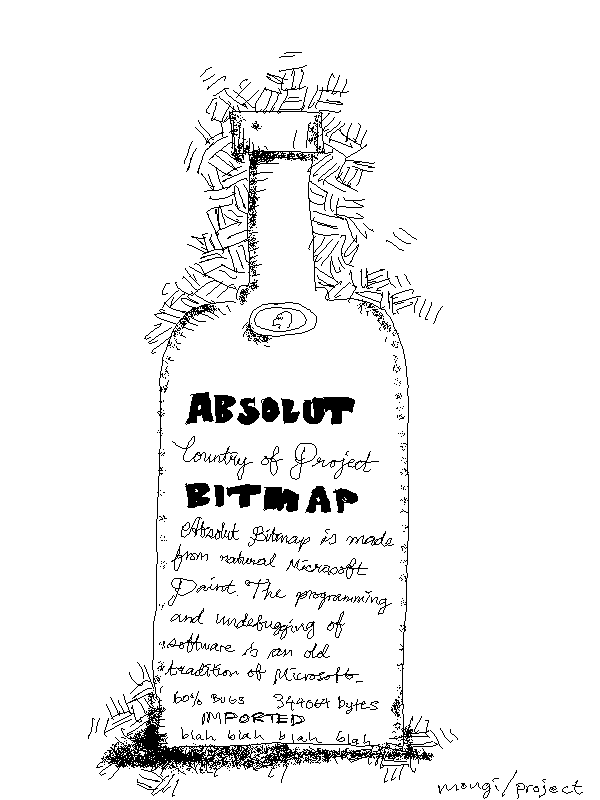 ABSOLUT
Country of Project
BITMAP
Absolut Bitmap is made
from natural Microsoft
Paint. The programming
and undebugging of
software is an old
tradition of Microsoft.
60% BUGS 344064 bytes
IMPORTED
blah blah blah blah
mongi/project